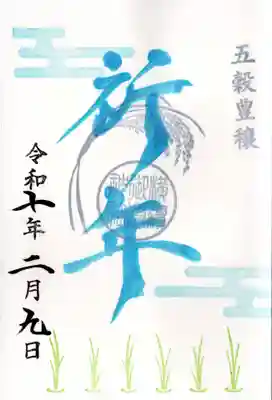 五穀豊穣
祈年
令和十年二月九日